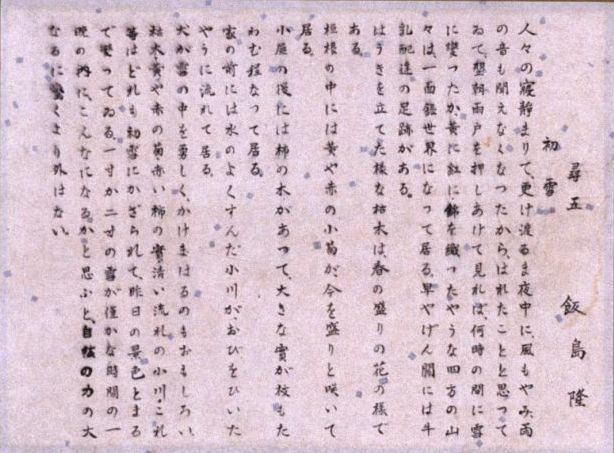 尋五　飯島隆
初雪
人々の寝静まりて、更け渡るま夜中に、風もやみ、雨
の音も聞えなくなつたから、はれたことと思つて
ゐて翌朝雨戸を押しあけて見れば、何時の間に雪
に変つたか、黄に紅に錦を織つたやうな四方の山
々は一面銀世界になつて居る。早やげん関には牛
乳配達の足跡がある。
はうきを立てた様な枯木は、春の盛りの花の様で
ある。
垣根の中には黄や赤の小菊が、今を盛りと咲いて
居る。
小屋の後には柿の木があつて、大きな実が枝もた
わむ程なつて居る。
家の前には水のよくすんだ小川が、おびをひいた
やうに流れて居る。
犬が雪の中を勇しく、かけまはるのもおもしろい。
枯木黄や赤の菊赤い柿の実清い流れの小川これ
等はどれも初雪にかざられて、昨日の景色とまる
で変つてゐる。一寸か二寸の雪が僅かな時間の一
晩の内に、こんなになるかと思ふと、自然の力の大
なるに驚くより外はない。